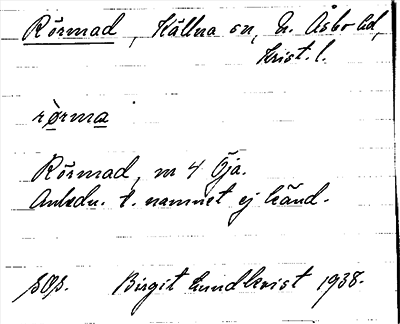 Rörmad, Källna sn, N. Åsbo hd,
Krist. l.
rö̀rma
Rörmad, nr 4 Öja.
Anledn. t. namnet ej känd.
Birgit Lundkvist 1938.